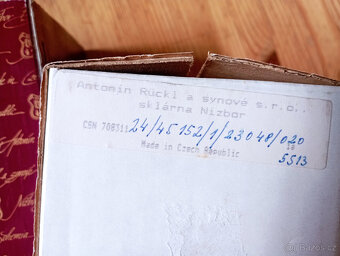 Antonín Rückl a synové s.r.o..
sklárna Nižbor
ČSN 708311 24/45 152/1/23048/020
Made in Czech Republic
5513
Bohemia
Bazos.cz